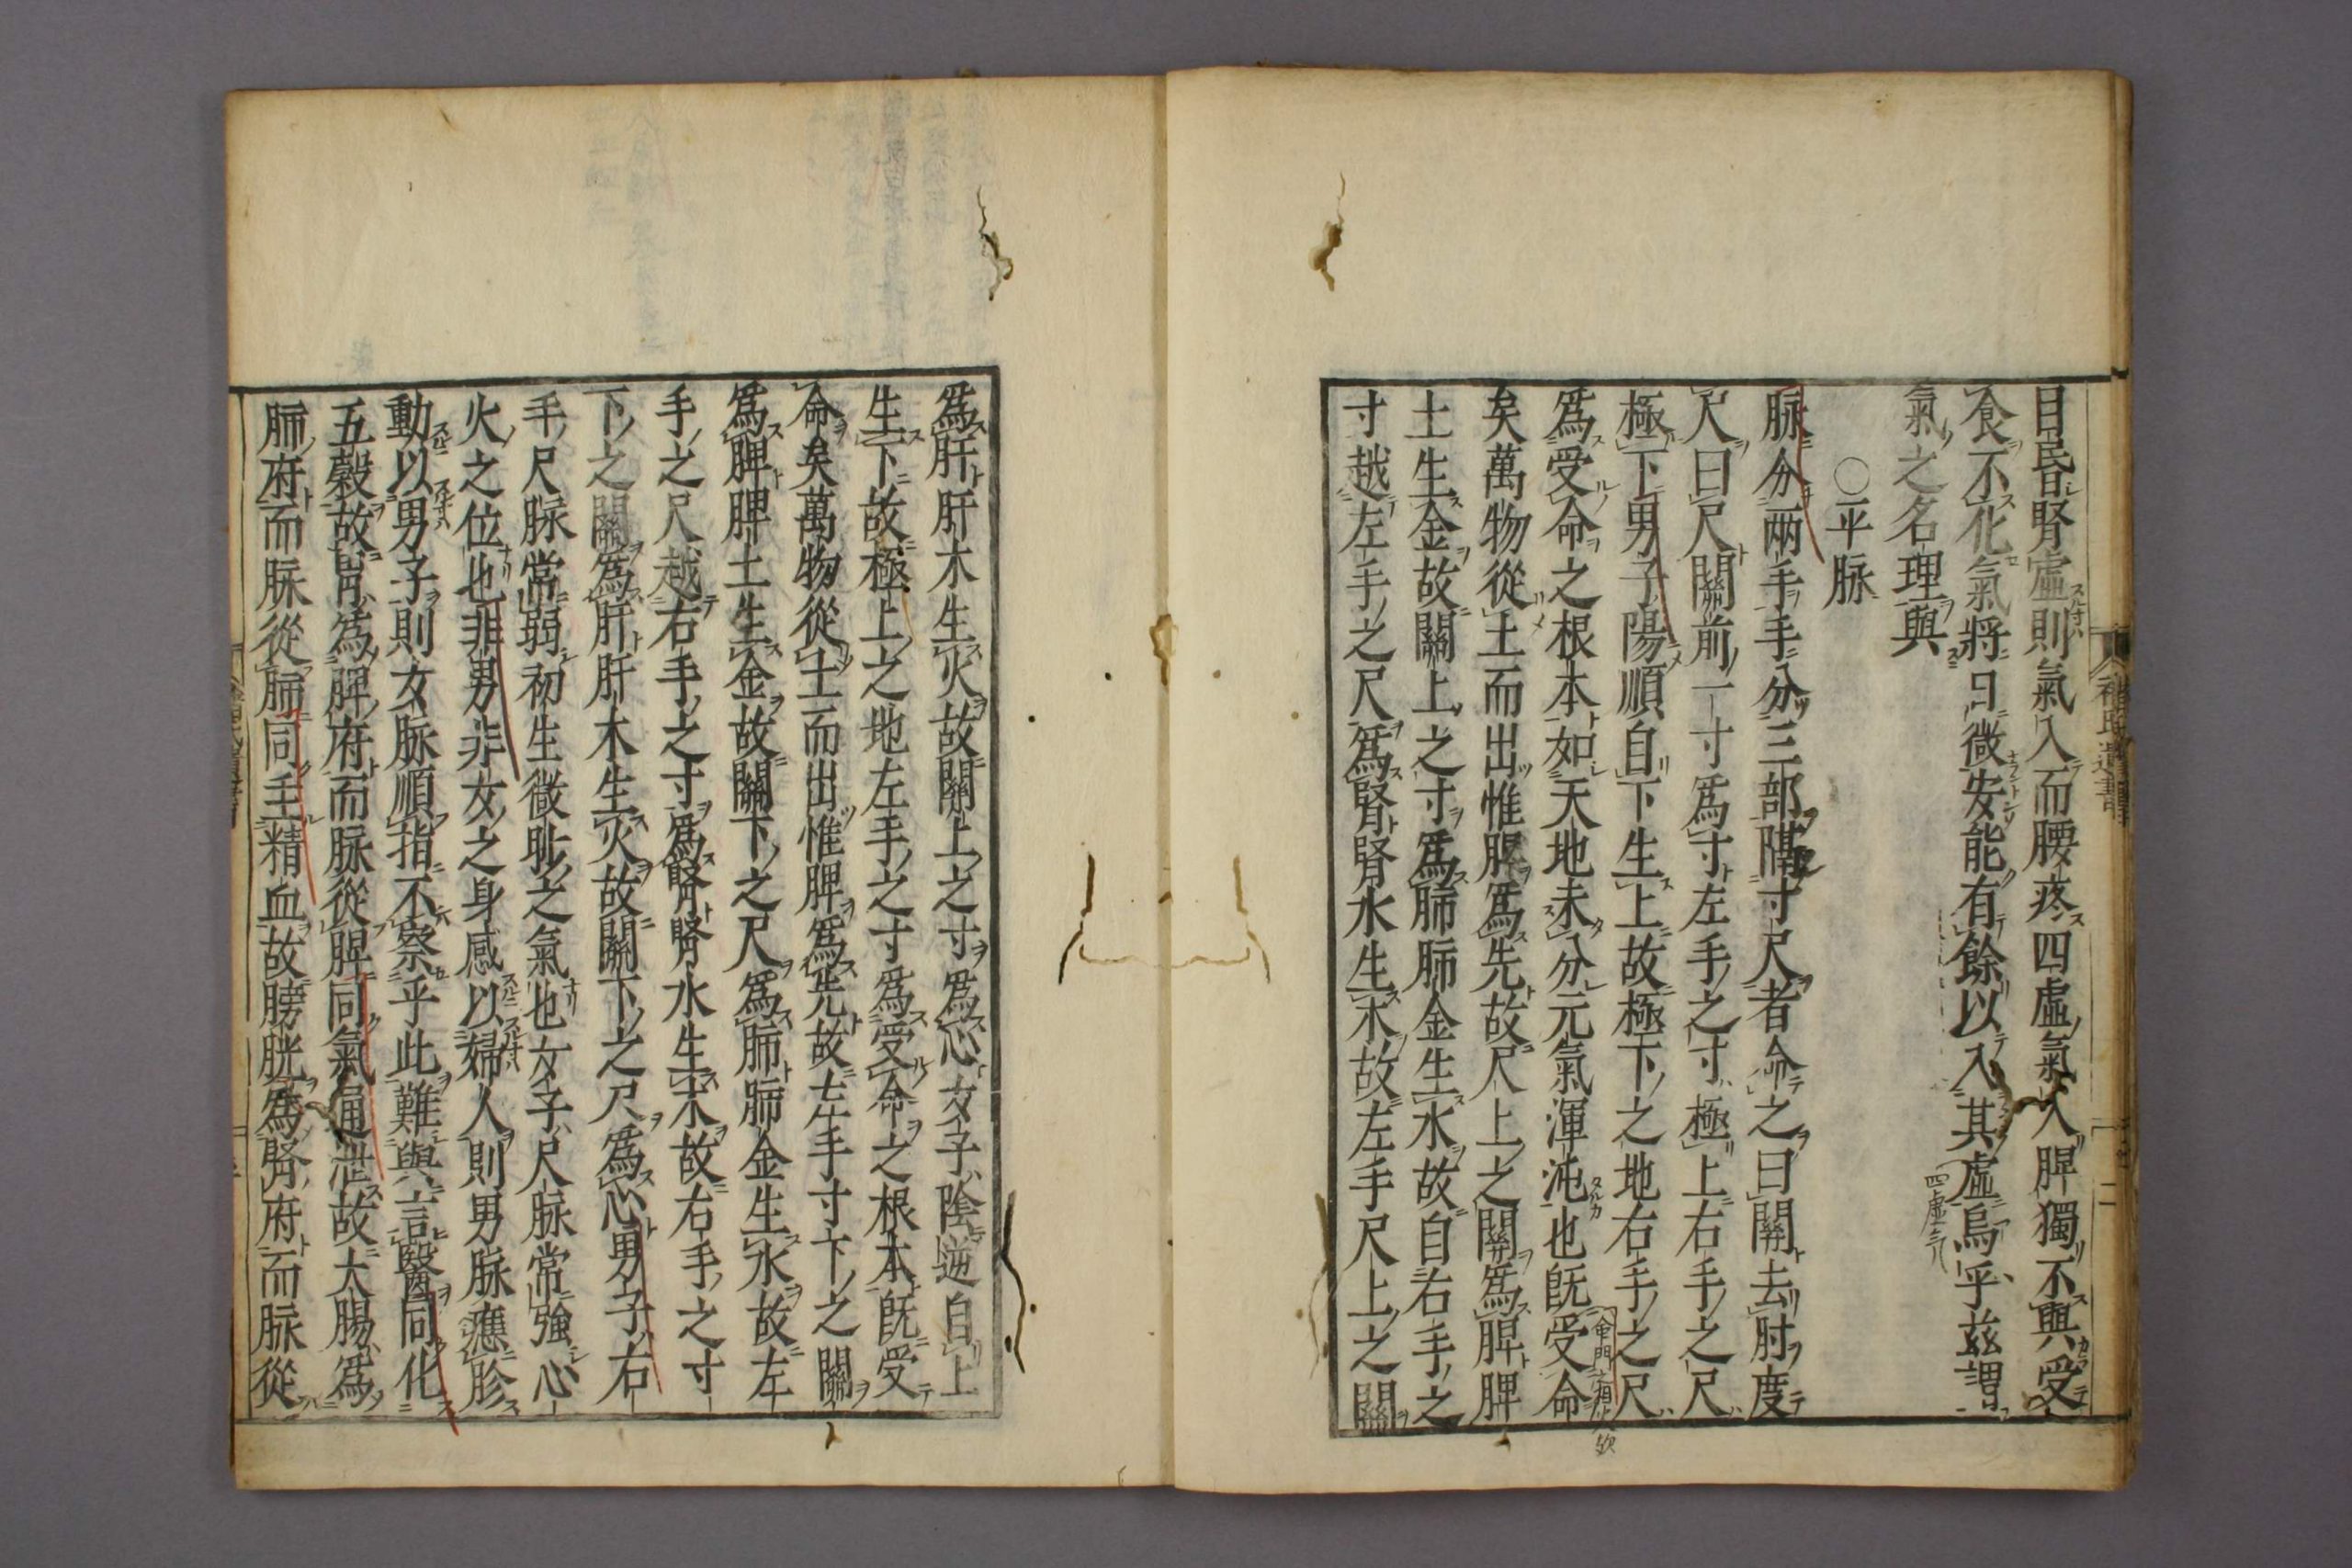 目昏腎虛則氣入而腰疼四虛氣入脾獨不與受
食不化氣將日微安能有餘以入其虛烏乎玆謂
氣之名理與
○平脉
脉分兩手手分三部隔寸尺者命之曰關去肘度
尺曰尺關前一寸爲寸左手之寸極上右手之尺
極下男子陽順自下生上故極下之地右手之尺
爲受命之根本如天地未分元氣渾沌也旣受命
矣萬物從土而出惟脾爲先故尺上之關爲脾脾
土生金故關上之寸爲肺肺金生水故自右手之
寸越左手之尺爲腎腎水生木故左手尺上之關
爲肝肝木生火故關上之寸爲心女子陰逆自上
生下故極上之地左手之寸爲受命之根本旣受
命矣萬物從土而出惟脾爲先故左手寸下之關
爲脾脾土生金故關下之尺爲肺肺金生水故左
手之尺越右手之寸爲腎腎水生木故右手之寸
下之關爲肝肝木生火故關下之尺爲心男子右
手尺脉常弱初生微眇之氣也女子尺脉常強心
火之位也非男非女之身感以婦人則男脉應胗
動以男子則女脉順指不察乎此難與言醫同化
五穀故胃爲脾府而脉從脾同氣通泄故大腸爲
肺府而脉從肺同主精血故膀胱爲腎府而脉從
褚氏遺書
二
四虛气